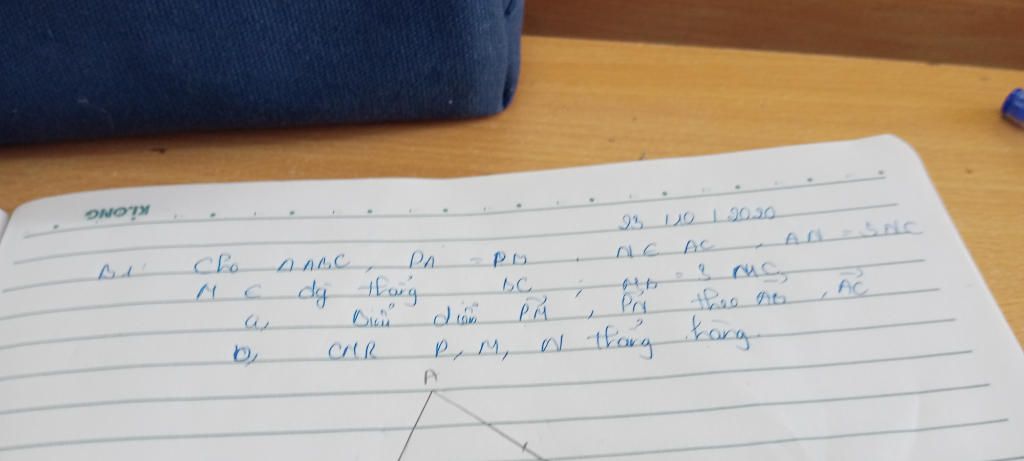 KLONG
23 / 10 / 2020
B1: Cho ΔABC, PA = PB, N ∈ AC, AN = 3NC
M ∈ đg thẳng BC, MB = 3 MC
a, Biểu diễn \overrightarrow{PM}, \overrightarrow{PN} theo \overrightarrow{AB}, \overrightarrow{AC}
b, CMR P, M, N thẳng hàng.
A